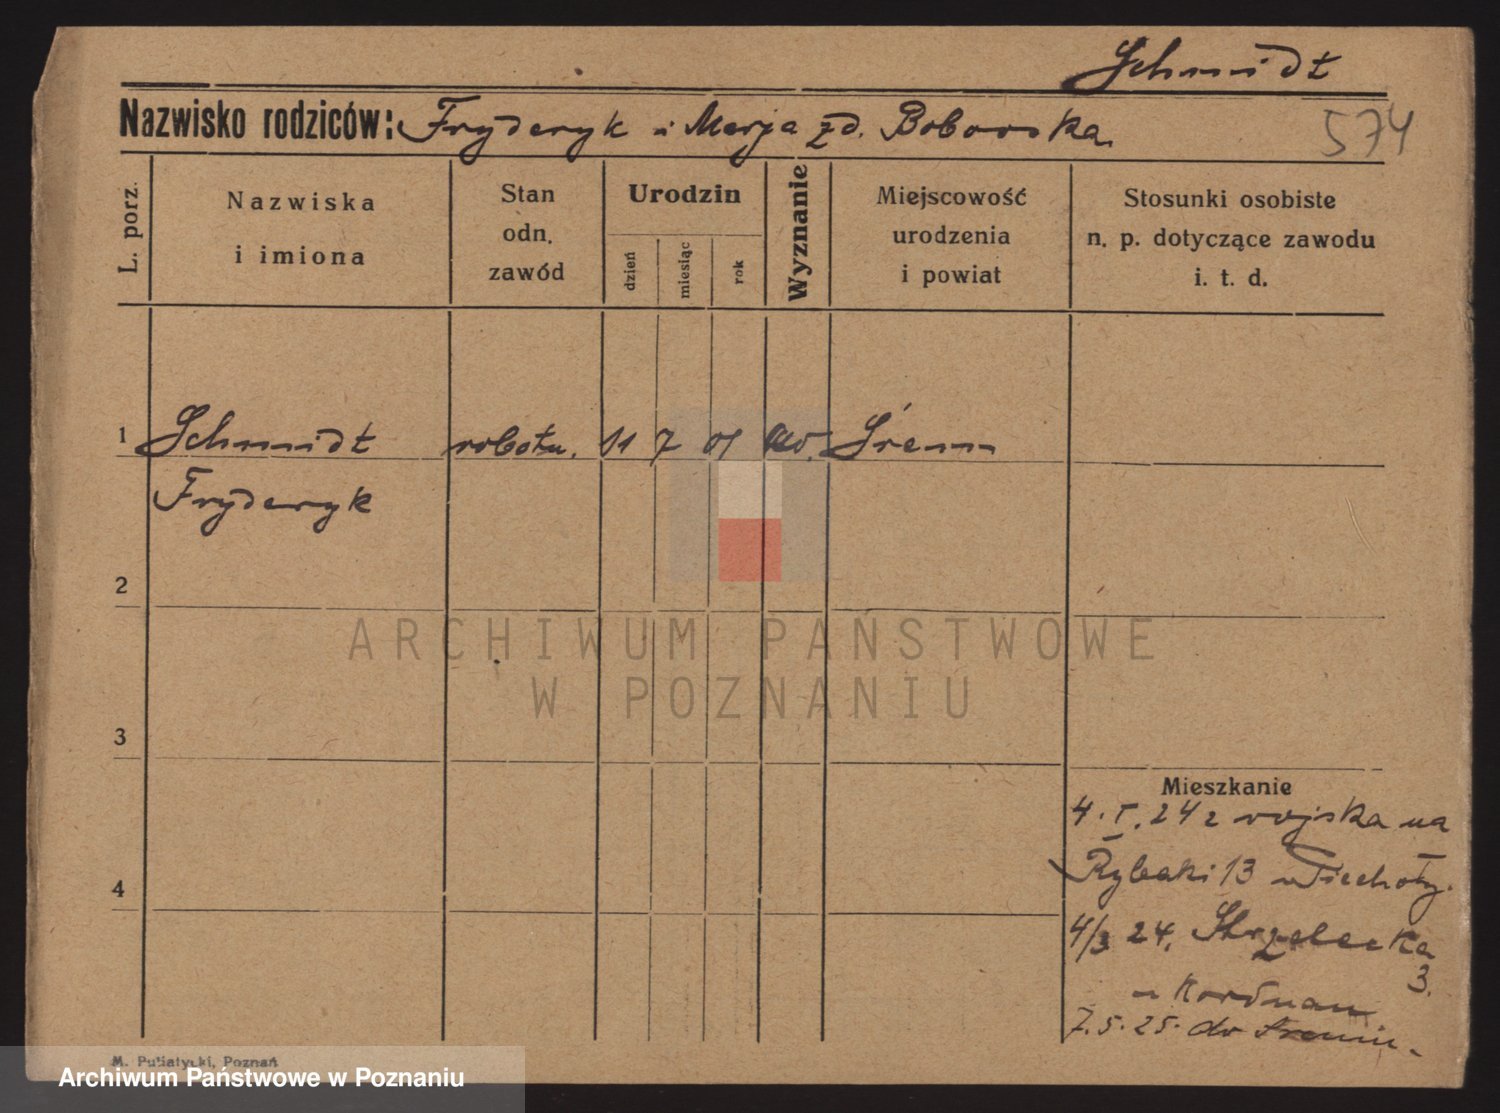 Schmidt
Nazwisko rodziców: Fryderyk i Marja zd. Borowska
574
L. porz.
Nazwiska
i imiona
Stan
odn.
zawód
Urodzin
dzień
miesiąc
rok
Wyznanie
Miejscowość
urodzenia
i powiat
Stosunki osobiste
n. p. dotyczące zawodu
i. t. d.
1 Schmidt robotn. 11 7 01 Śrem
Fryderyk
2
3
4
ARCHIWUM PAŃSTWOWE
W POZNANIU
Mieszkanie
4. I. 24 z wojska na
Rybaki 13 u Piechoty.
4/3 24. Strzelecka
3.
u Kordman
7.5.25. do Śremu.
M. Putiatycki, Poznań
Archiwum Państwowe w Poznaniu